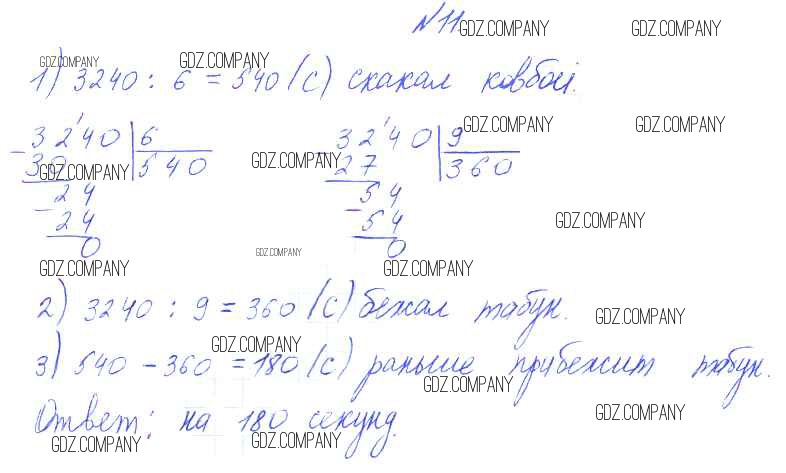 №11
1) 3240 : 6 = 540 (с) скакал ковбой.
3240 | 6
30 | 540
24
24
0
3240 | 9
27 | 360
54
54
0
2) 3240 : 9 = 360 (с) бежал табун.
3) 540 - 360 = 180 (с) раньше прибежит табун.
Ответ: на 180 секунд.
GDZ.COMPANY GDZ.COMPANY
GDZ.COMPANY GDZ.COMPANY
GDZ.COMPANY GDZ.COMPANY
GDZ.COMPANY GDZ.COMPANY
GDZ.COMPANY
GDZ.COMPANY
GDZ.COMPANY GDZ.COMPANY
GDZ.COMPANY
GDZ.COMPANY
GDZ.COMPANY
GDZ.COMPANY
GDZ.COMPANY GDZ.COMPANY